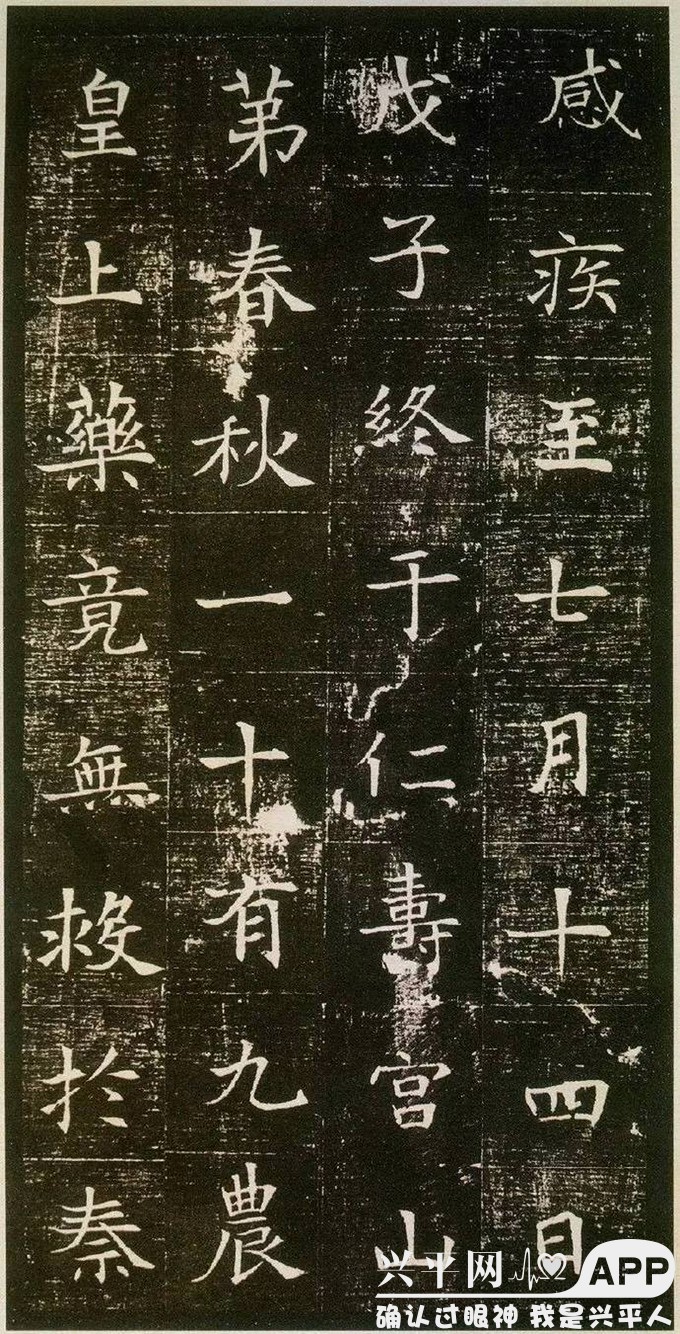 感疾至七月十四日
戊子終于仁壽宮山
苐春秋一十有九農
皇上藥竟無救於秦
兴平网 APP
确认过眼神 我是兴平人